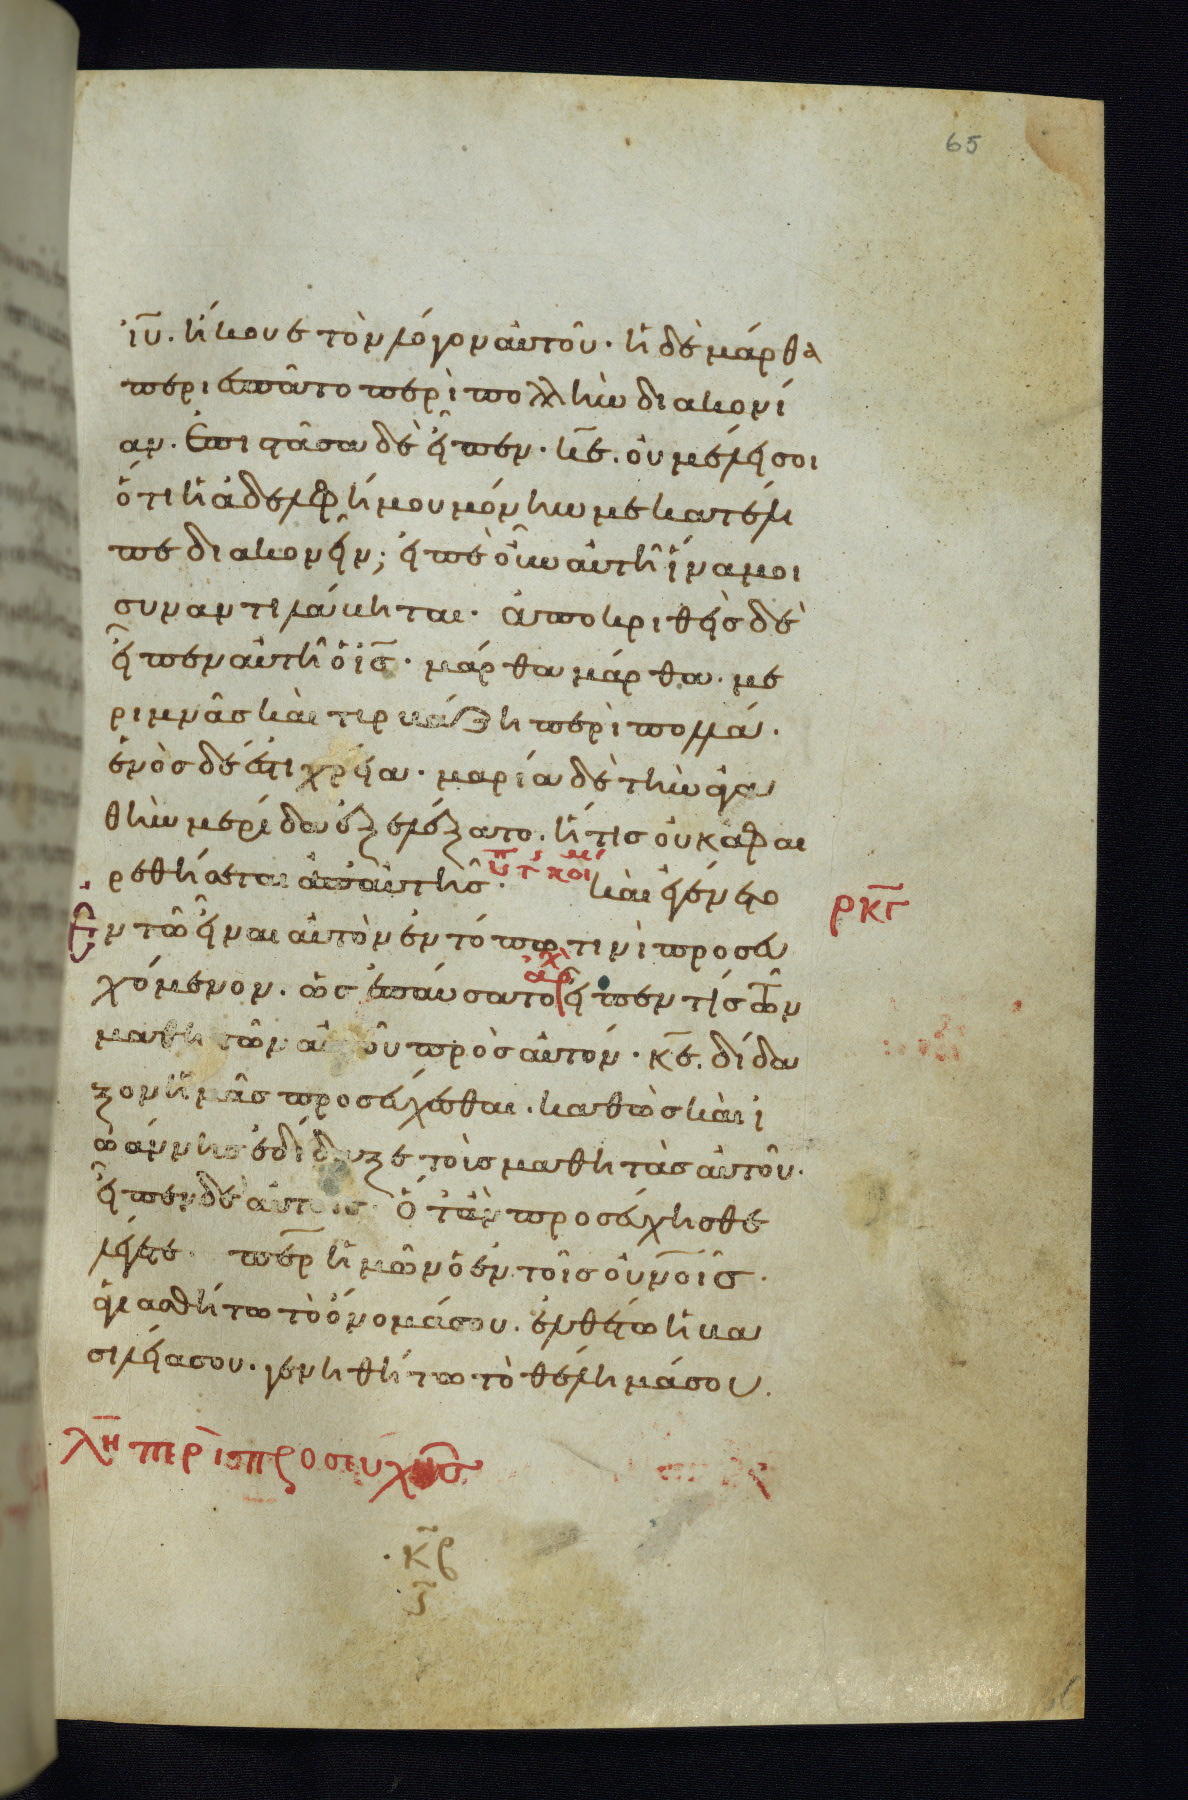 65
ἰῦ. ἤκουε τὸν λόγον αὐτοῦ· ἡ δὲ μάρθα
περιεσπᾶτο περὶ πολλὴν διακονί
αν. Ἐπιστᾶσα δὲ εἶπεν· κ̅ε. οὐ μέλει σοι
ὅτι ἡ ἀδελφή μου μόνην με κατέλι
πε διακονεῖν; εἰπὲ οὖν αὐτῇ ἵνα μοι
συναντιλάβηται· ἀποκριθεὶς δὲ
εἶπεν αὐτῇ ὁ ἰ̅ς· μάρθα μάρθα. με
ριμνᾶς καὶ τυρβάζῃ περὶ πολλά.
ἑνὸς δέ ἐστι χρεία· μαρία δὲ τὴν ἀγα
θὴν μερίδα ἐξελέξατο. ἥτις οὐκ ἀφαι
ρεθήσεται ἀπ' αὐτῆς. καὶ ἐγένετο
ρκγ
Ἐν τῶ εἶναι αὐτὸν ἐν τόπω τινὶ προσευ
χόμενον. ὡς ἐπαύσατο εἶπέν τίς τῶν
ἀρχ
μαθητῶν αὐτοῦ πρὸς αὐτόν· κ̅ε. δίδα
ξον ἡμᾶς προσεύχεσθαι. καθὼς καὶ ἰ
ωάννης ἐδίδαξε τοὶς μαθητὰς αὐτοῦ.
εἶπεν δὲ αὐτοῖς· ὅταν προσεύχησθε
λέγετε· π̅ερ ἡμῶν ὁ ἐν τοῖς οὐνοῖς·
ἁγιασθήτω τὸ ὄνομά σου. ἐλθέτω ἡ βα
σιλεία σου. γενηθήτω τὸ θέλημά σου.
λη περὶ προσευχῆς
κρ